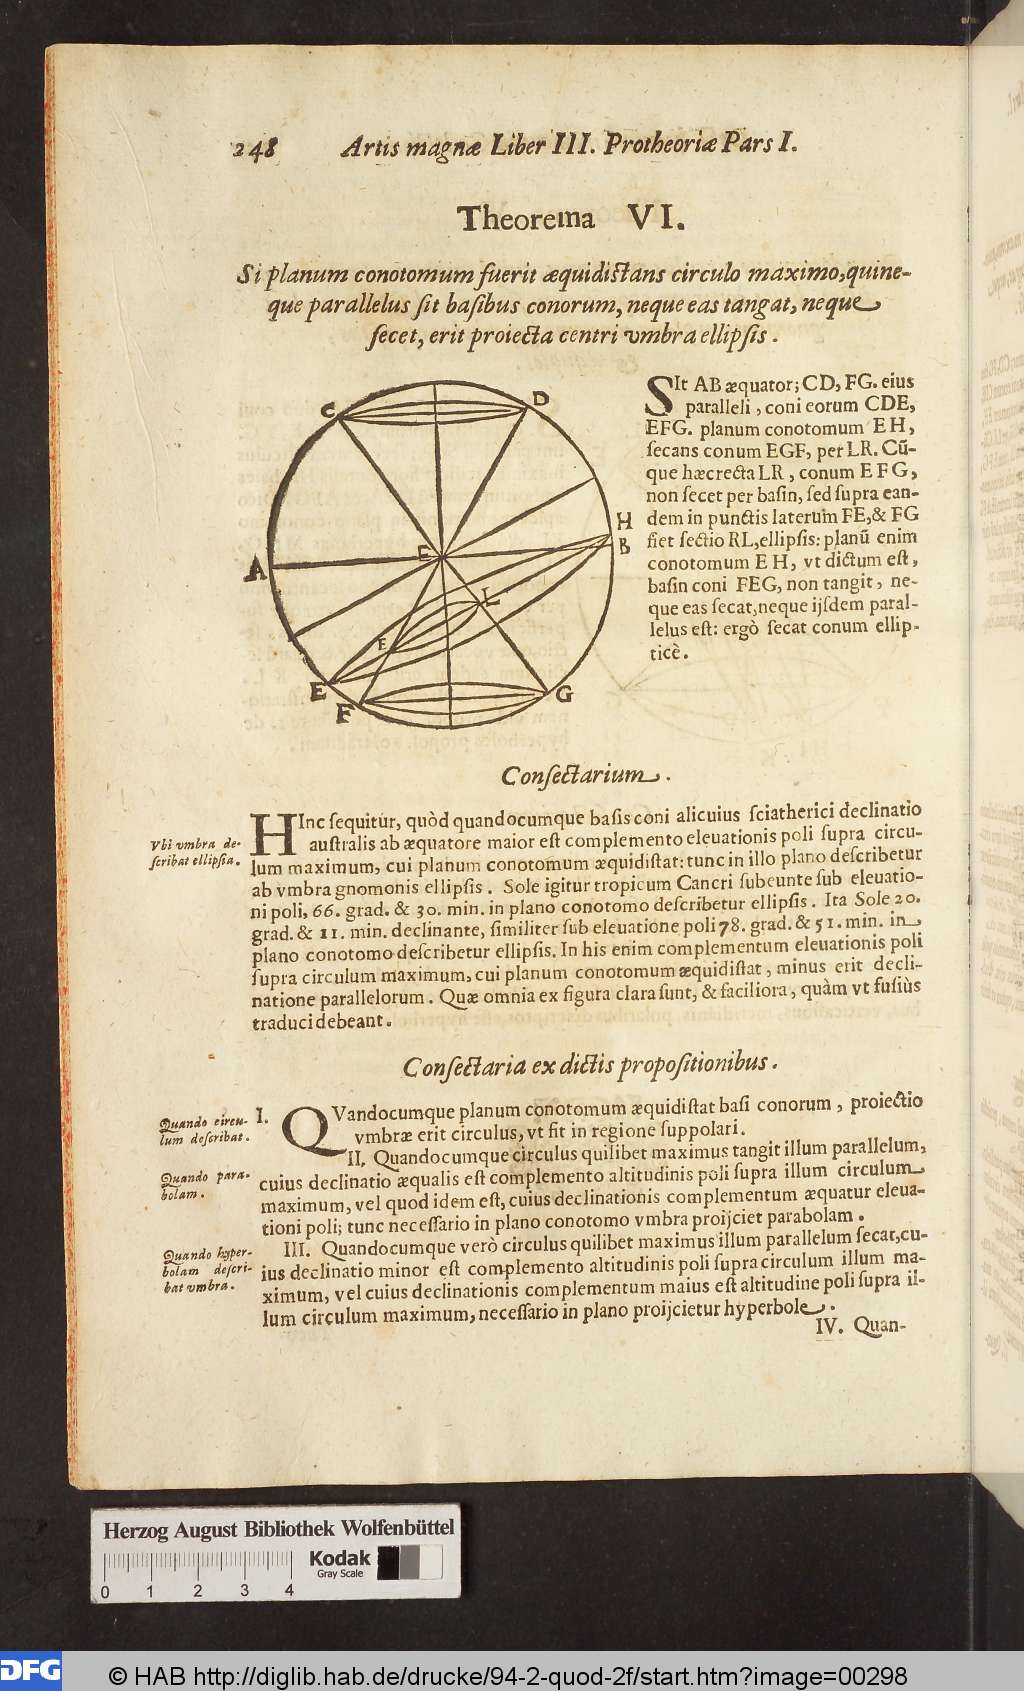 248 Artis magnæ Liber III. Protheoriæ Pars I.
Theorema VI.
Si planum conotomum fuerit æquidiſtans circulo maximo, quine-
que parallelus ſit baſibus conorum, neque eas tangat, neque
ſecet, erit proiecta centri vmbra ellipſis.
C
D
E
H
B
A
L
E
E
F
G
SIt AB æquator; CD, FG. eius
paralleli, coni eorum CDE,
EFG. planum conotomum EH,
ſecans conum EGF, per LR. Cũ-
que hæc recta LR, conum EFG,
non ſecet per baſin, ſed ſupra ean-
dem in punctis laterum FE, & FG
fiet ſectio RL, ellipſis: planũ enim
conotomum EH, vt dictum eſt,
baſin coni FEG, non tangit, ne-
que eas ſecat, neque ijſdem paral-
lelus eſt: ergò ſecat conum ellip-
ticè.
Conſectarium.
Vbi vmbra de-
ſcribat ellipſin.
HInc ſequitur, quòd quandocumque baſis coni alicuius ſciatherici declinatio
auſtralis ab æquatore maior eſt complemento eleuationis poli ſupra circu-
lum maximum, cui planum conotomum æquidiſtat: tunc in illo plano deſcribetur
ab vmbra gnomonis ellipſis. Sole igitur tropicum Cancri ſubeunte ſub eleuatio-
ni poli, 66. grad. & 30. min. in plano conotomo deſcribetur ellipſis. Ita Sole 20.
grad. & 11. min. declinante, ſimiliter ſub eleuatione poli 78. grad. & 51. min. in
plano conotomo deſcribetur ellipſis. In his enim complementum eleuationis poli
ſupra circulum maximum, cui planum conotomum æquidiſtat, minus erit decli-
natione parallelorum. Quæ omnia ex figura clara ſunt, & faciliora, quàm vt fuſiùs
traduci debeant.
Conſectaria ex dictis propoſitionibus.
Quando circu-
lum deſcribat.
I. QVandocumque planum conotomum æquidiſtat baſi conorum, proiectio
vmbræ erit circulus, vt fit in regione ſuppolari.
Quando para-
bolam.
II. Quandocumque circulus quilibet maximus tangit illum parallelum,
cuius declinatio æqualis eſt complemento altitudinis poli ſupra illum circulum
maximum, vel quod idem eſt, cuius declinationis complementum æquatur eleua-
tioni poli; tunc neceſſario in plano conotomo vmbra proijciet parabolam.
Quando hyper-
bolam deſcri-
bat vmbra.
III. Quandocumque verò circulus quilibet maximus illum parallelum ſecat, cu-
ius declinatio minor eſt complemento altitudinis poli ſupra circulum illum ma-
ximum, vel cuius declinationis complementum maius eſt altitudine poli ſupra il-
lum circulum maximum, neceſſario in plano proijcietur hyperbole.
IV. Quan-
Herzog August Bibliothek Wolfenbüttel
0 1 2 3 4
Kodak
Gray Scale
DFG © HAB http://diglib.hab.de/drucke/94-2-quod-2f/start.htm?image=00298